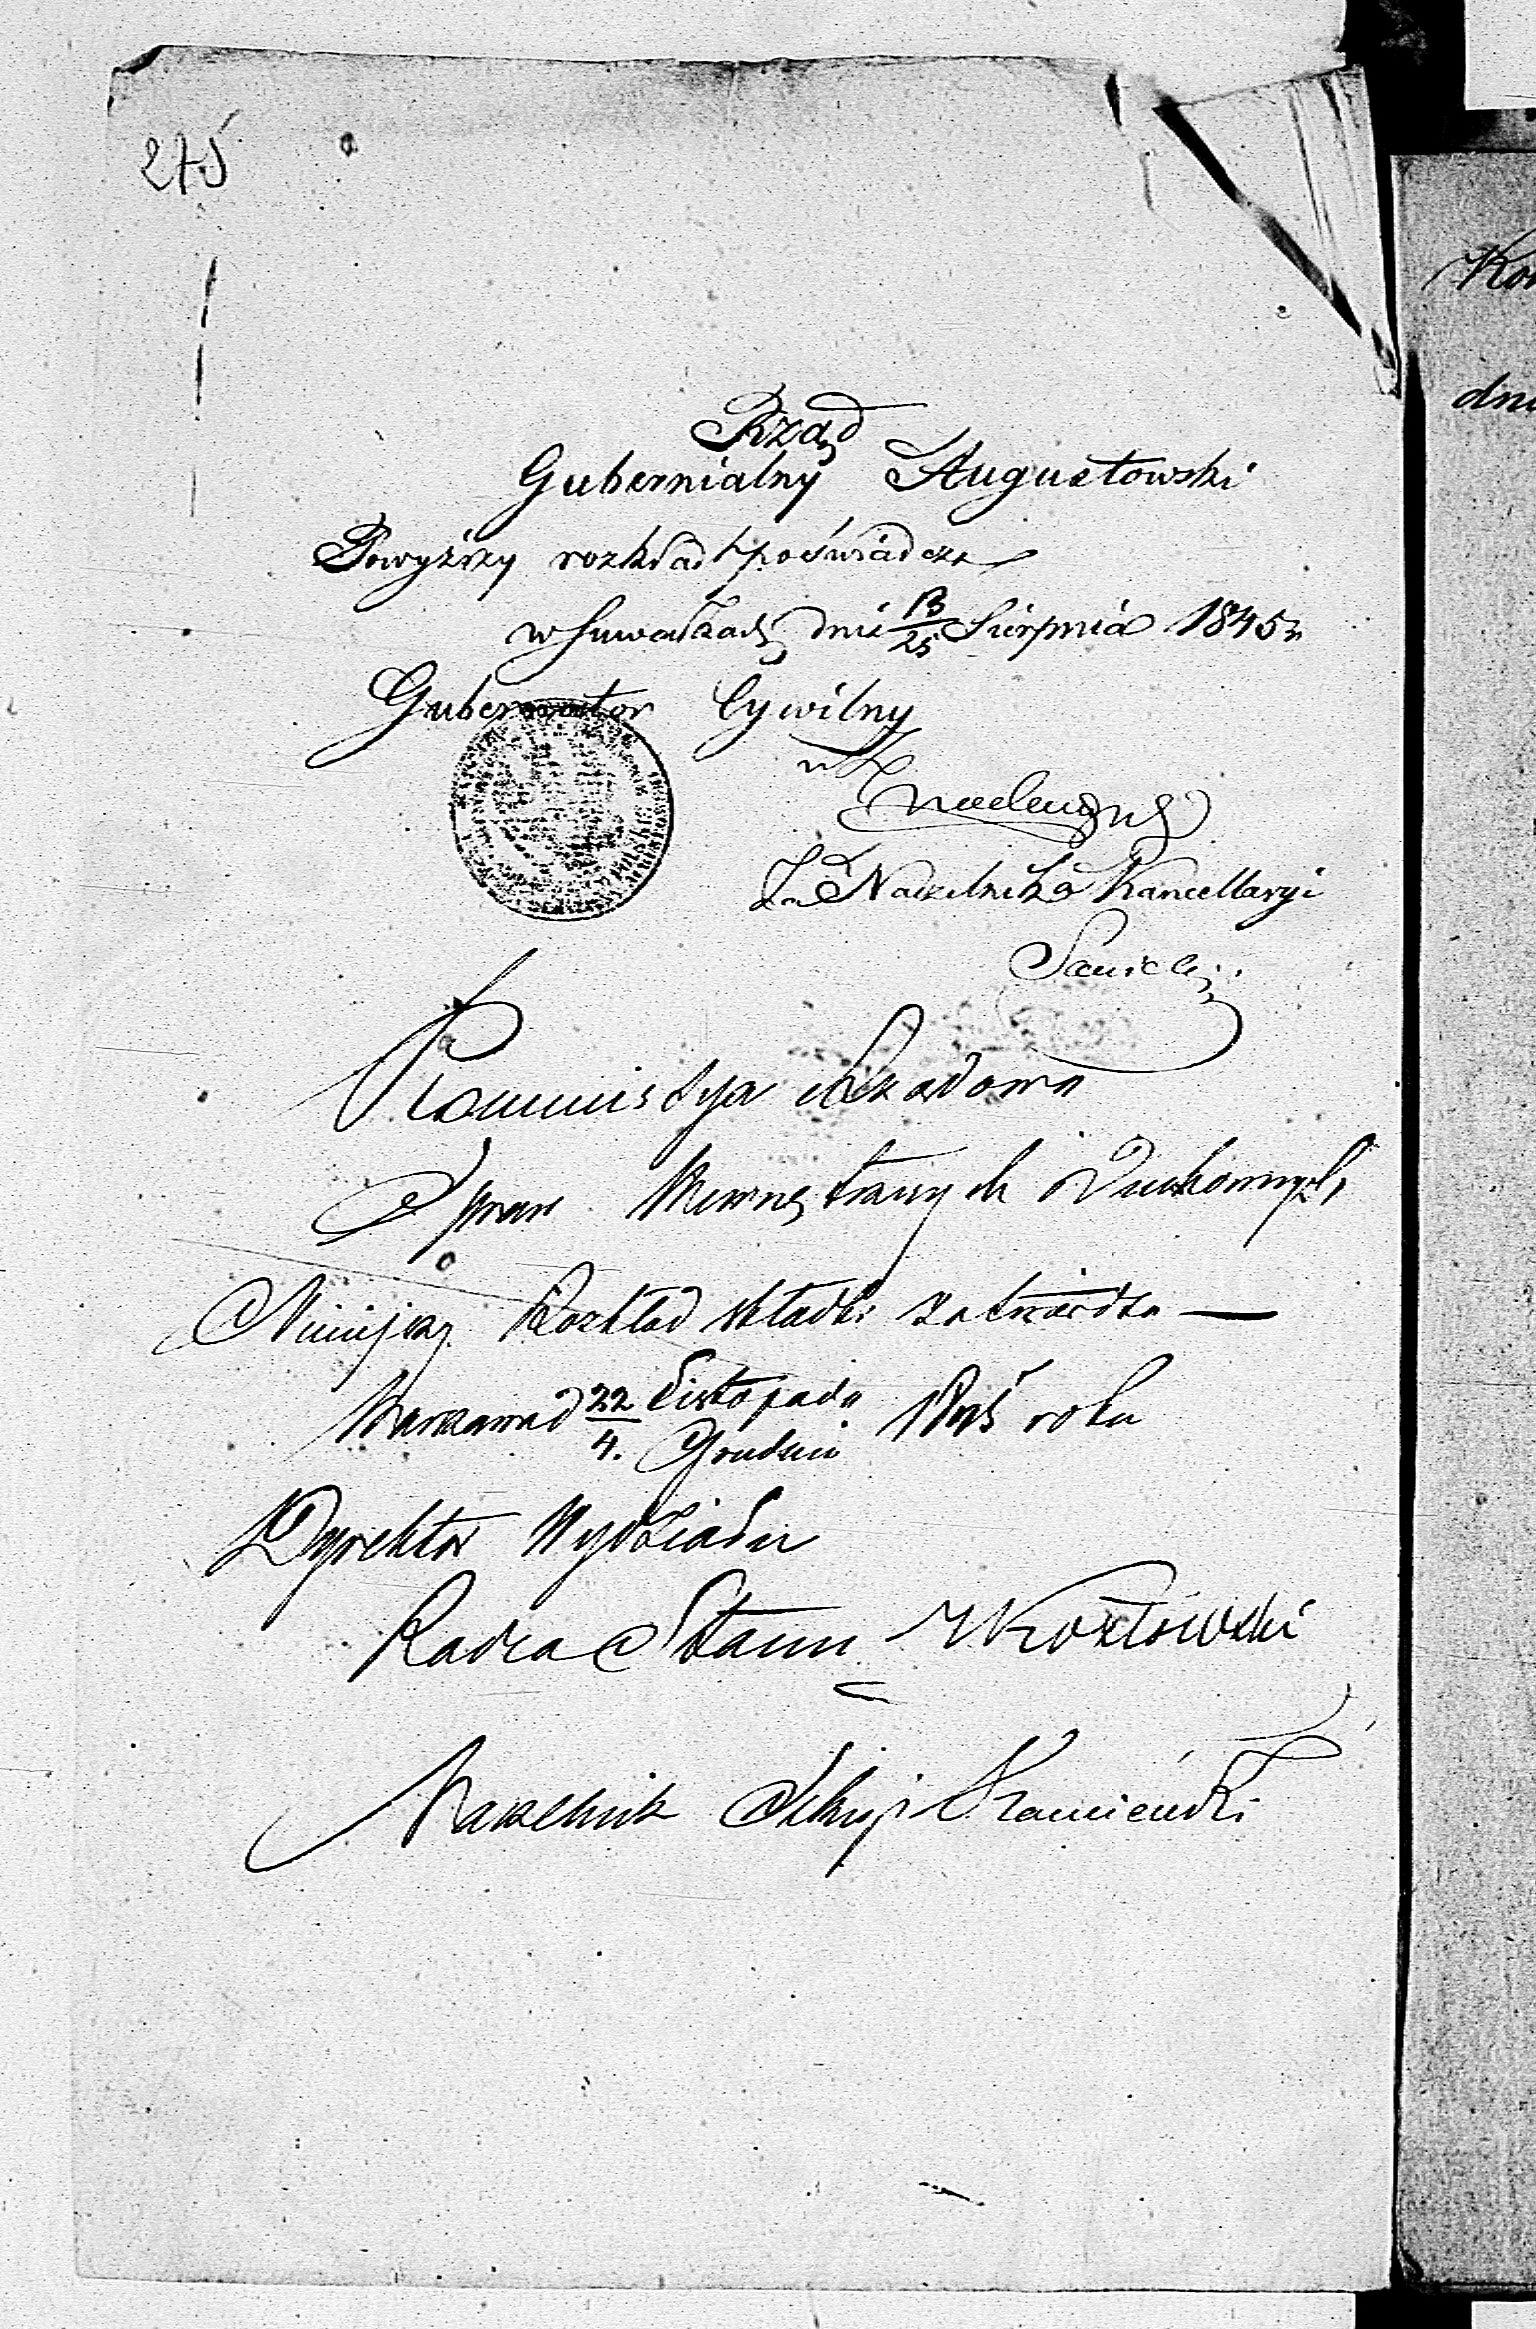 275
Rząd
Gubernialny Augustowski
Powyższy rozkład poświadcza
w Suwałkach dnia 13/25 Sierpnia 1845 r.
Gubernator Cywilny
Za Naczelnika Kancellaryi
Kommissya Rządowa
Spraw Wewnętrznych i Duchownych,
Niniejszy Rozkład składki zatwierdza —
Warszawa d 22/4. Listopada/Grudnia 1845 roku
Dyrektor Wydziału
Radca Stanu Kozłowski
Naczelnik Sekcyi Kamieński
Kom
dni